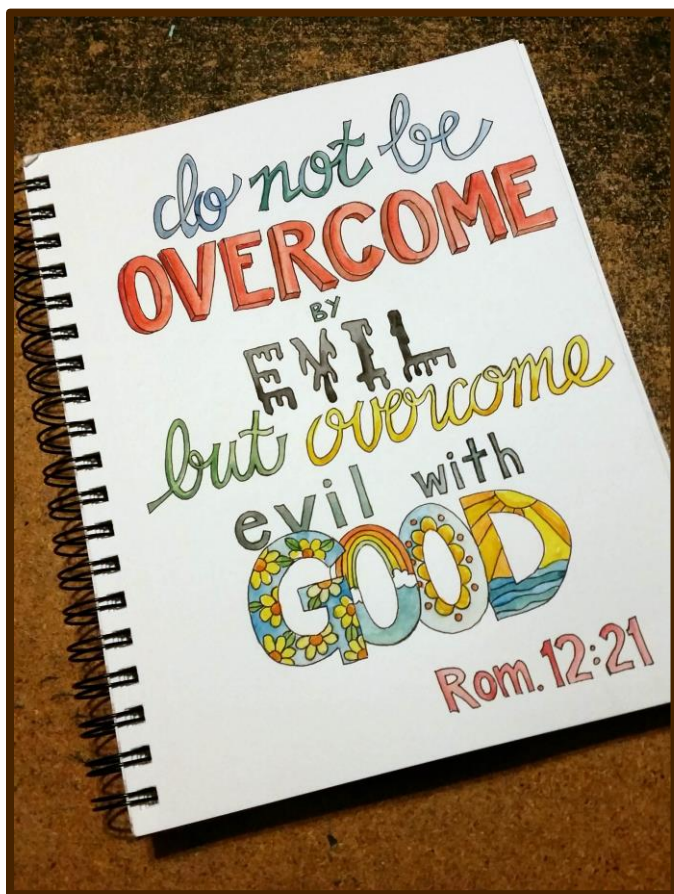 do not be
OVERCOME
BY
EVIL
but overcome
evil with
GOOD
Rom. 12:21